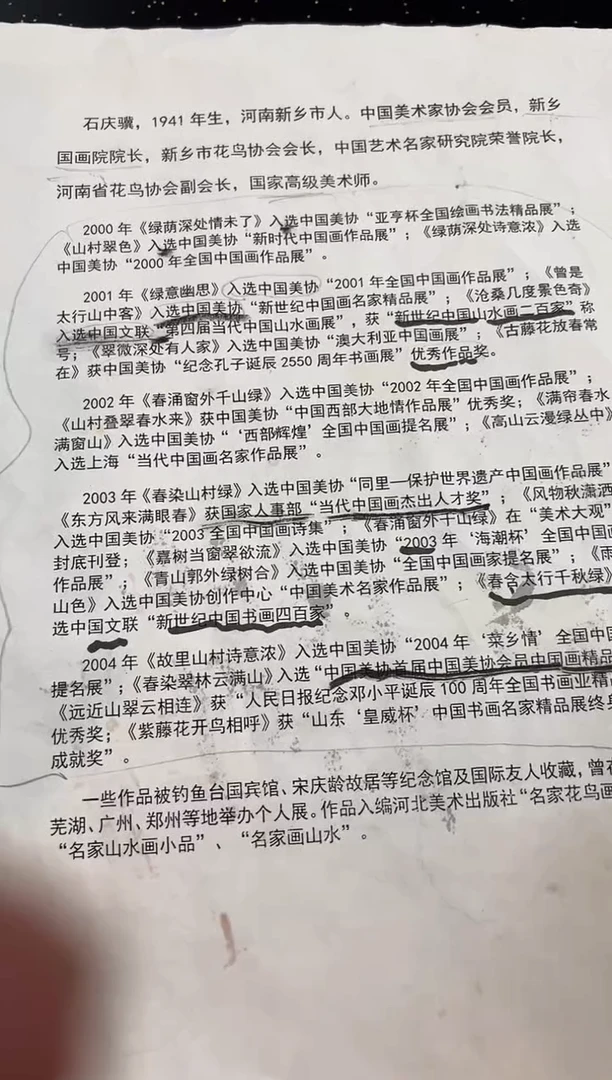 石庆骥，1941 年生，河南新乡市人。中国美术家协会会员，新乡
国画院院长，新乡市花鸟协会会长，中国艺术名家研究院荣誉院长，
河南省花鸟协会副会长，国家高级美术师。
2000 年《绿荫深处情未了》入选中国美协“亚亨杯全国绘画书法精品展”；
《山村翠色》入选中国美协“新时代中国画作品展”；《绿荫深处诗意浓》入选
中国美协“2000 年全国中国画作品展”。
2001 年《绿意幽思》入选中国美协“2001 年全国中国画作品展”；《曾是
太行山中客》入选中国美协“新世纪中国画名家精品展”；《沧桑几度景色奇》
入选中国文联“第四届当代中国山水画展”，获“新世纪中国山水画二百家”称
号；《翠微深处有人家》入选中国美协“澳大利亚中国画展”；《古藤花放春常
在》获中国美协“纪念孔子诞辰 2550 周年书画展”优秀作品奖。
2002 年《春涌窗外千山绿》入选中国美协“2002 年全国中国画作品展”；
《山村叠翠春水来》获中国美协“中国西部大地情作品展”优秀奖；《满帘春水
满窗山》入选中国美协“‘西部辉煌’全国中国画提名展”；《高山云漫绿丛中》
入选上海“当代中国画名家作品展”。
2003 年《春染山村绿》入选中国美协“同里—保护世界遗产中国画作品展”
《东方风来满眼春》获国家人事部“当代中国画杰出人才奖”；《风物秋潇洒
入选中国美协“2003 全国中国画诗集”；《春涌窗外千山绿》在“美术大观”
封底刊登；《嘉树当窗翠欲流》入选中国美协“2003 年‘海潮杯’全国中国画
作品展”；《青山郭外绿树合》入选中国美协“全国中国画家提名展”；《雨
山色》入选中国美协创作中心“中国美术名家作品展”；《春含太行千秋绿》
选中国文联“新世纪中国书画四百家”。
2004 年《故里山村诗意浓》入选中国美协“2004 年‘菜乡情’全国中国
提名展”；《春染翠林云满山》入选“中国美协首届中国美协会员中国画精品
《远近山翠云相连》获“人民日报纪念邓小平诞辰 100 周年全国书画业精品
优秀奖；《紫藤花开鸟相呼》获“山东‘皇威杯’中国书画名家精品展终身
成就奖”。
一些作品被钓鱼台国宾馆、宋庆龄故居等纪念馆及国际友人收藏，曾在
芜湖、广州、郑州等地举办个人展。作品入编河北美术出版社“名家花鸟画
“名家山水画小品”、“名家画山水”。